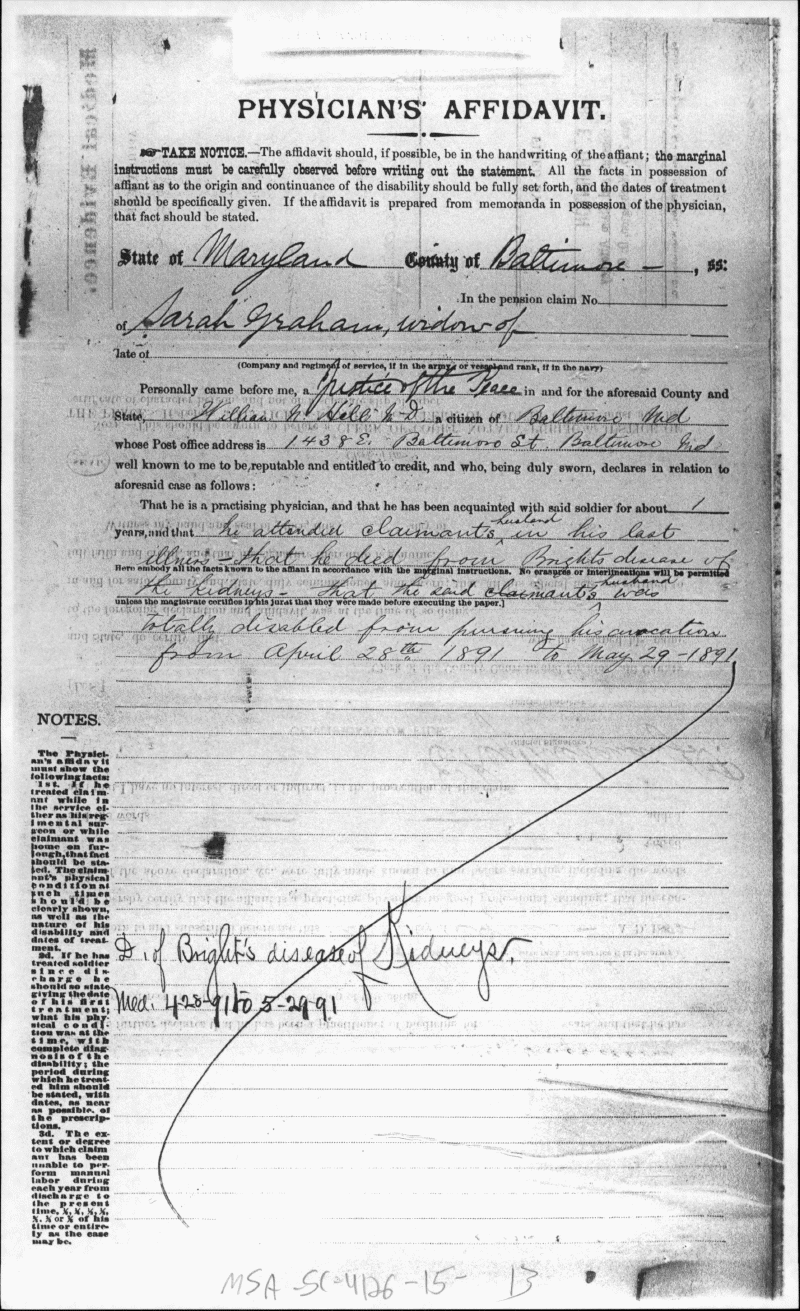 PHYSICIAN'S AFFIDAVIT.
☞TAKE NOTICE.—The affidavit should, if possible, be in the handwriting of the affiant; the marginal
instructions must be carefully observed before writing out the statement. All the facts in possession of
affiant as to the origin and continuance of the disability should be fully set forth, and the dates of treatment
should be specifically given. If the affidavit is prepared from memoranda in possession of the physician,
that fact should be stated.
State of Maryland County of Baltimore — , ss:
In the pension claim No
of Sarah Graham, widow of
late of
(Company and regiment of service, if in the army; or vessel and rank, if in the navy)
Personally came before me, a Justice of the Peace in and for the aforesaid County and
State, William N Hill M.D. a citizen of Baltimore Md
whose Post office address is 1438 E. Baltimore St. Baltimore Md
well known to me to be reputable and entitled to credit, and who, being duly sworn, declares in relation to
aforesaid case as follows:
That he is a practising physician, and that he has been acquainted with said soldier for about 1
years, and that he attended claimant's husband in his last
illness - that he died from Brights disease of
Here embody all the facts known to the affiant in accordance with the marginal instructions. No erasures or interlineations will be permitted
the Kidneys - that the said claimant's husband was
unless the magistrate certifies in his jurat that they were made before executing the paper.]
totally disabled from pursuing his avocation
from April 28th 1891 to May 29-1891
NOTES.
The Physici-
an's affidavit
must show the
following facts:
1st. If he
treated claim-
ant while in
the service ei-
ther as his reg-
imental sur-
geon or while
claimant was
home on fur-
lough, that fact
should be sta-
ted. The claim-
ant's physical
condition at
such times
should be
clearly shown,
as well as the
nature of his
disability and
dates of treat-
ment.
2d. If he has
treated soldier
since dis-
charge he
should so state
giving the date
of his first
treatment;
what his phy-
sical condi-
tion was at the
time, with
complete diag-
nosis of the
disability; the
period during
which he treat-
ed him should
be stated, with
dates, as near
as possible, of
the prescrip-
tions.
3d. The ex-
tent or degree
to which claim
ant has been
unable to per-
form manual
labor during
each year from
discharge to
the present
time, of his
time or entire-
ly as the case
may be.
D. of Bright's disease of Kidneys.
Med. 4-28-91 to 5-29-91
MSA-SC-4126-15- 13